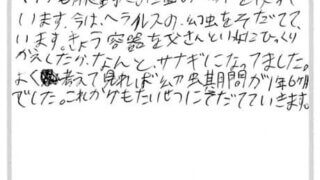 います。今は、ヘラクルスの、幼虫をそだてて、
います。きょう容器を父さんといっしょにひっくり
かえしたが、なんと、サナギになってました。
よく考えて見れば幼虫期間が1年6ケ月
でした。これからもたいせつにそだてていきます。